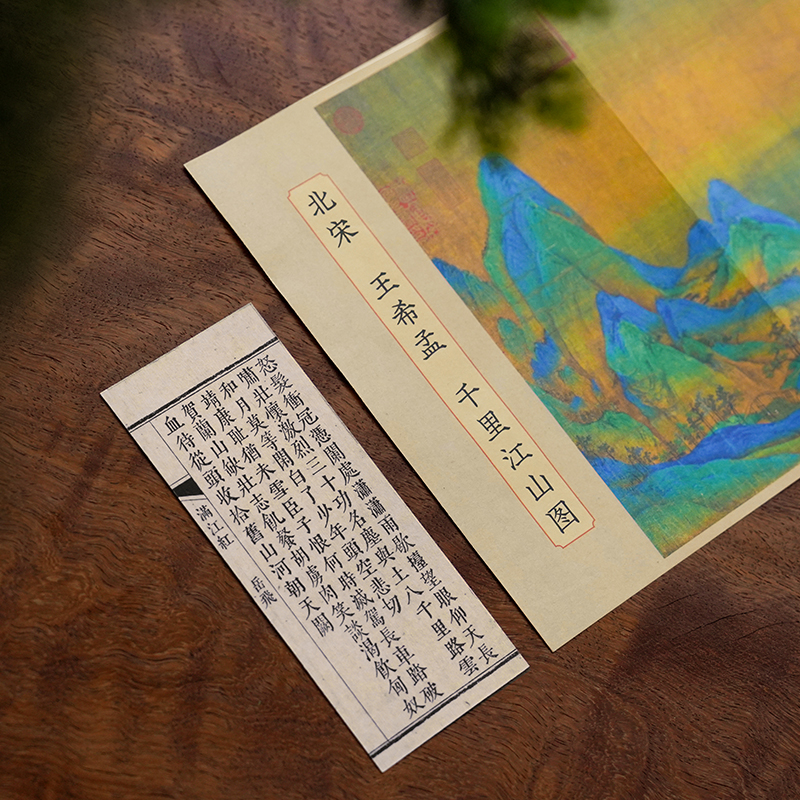 北宋 王希孟 千里江山图
怒髮衝冠憑闌處瀟瀟雨歇擡望眼仰天長
嘯壯懷激烈三十功名塵與土八千里路雲
和月莫等閒白了少年頭空悲切
靖康耻猶未雪臣子恨何時滅駕長車踏破
賀蘭山缺壯志飢餐胡虜肉笑談渴飲匈奴
血待從頭收拾舊山河朝天闕
滿江紅 岳飛